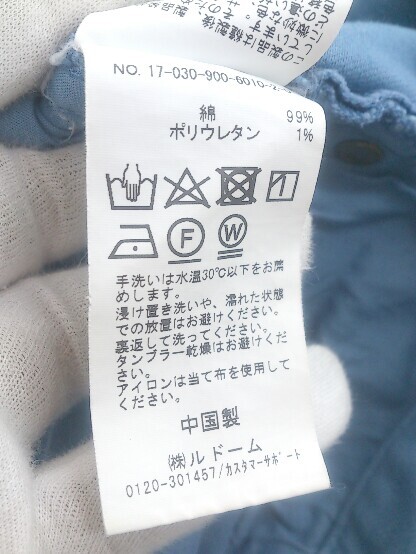 この製品は縫製後、製品
しています。そのた
に微妙な
色
NO. 17-030-900-6010-2
綿 99%
ポリウレタン 1%
F W
手洗いは水温30℃以下をお薦
めします。
浸け置き洗いや、濡れた状態
での放置はお避けください。
裏返して洗ってください。
タンブラー乾燥はお避けくだ
さい。
アイロンは当て布を使用して
ください。
中国製
㈱ルドーム
0120-301457/カスタマーサポート